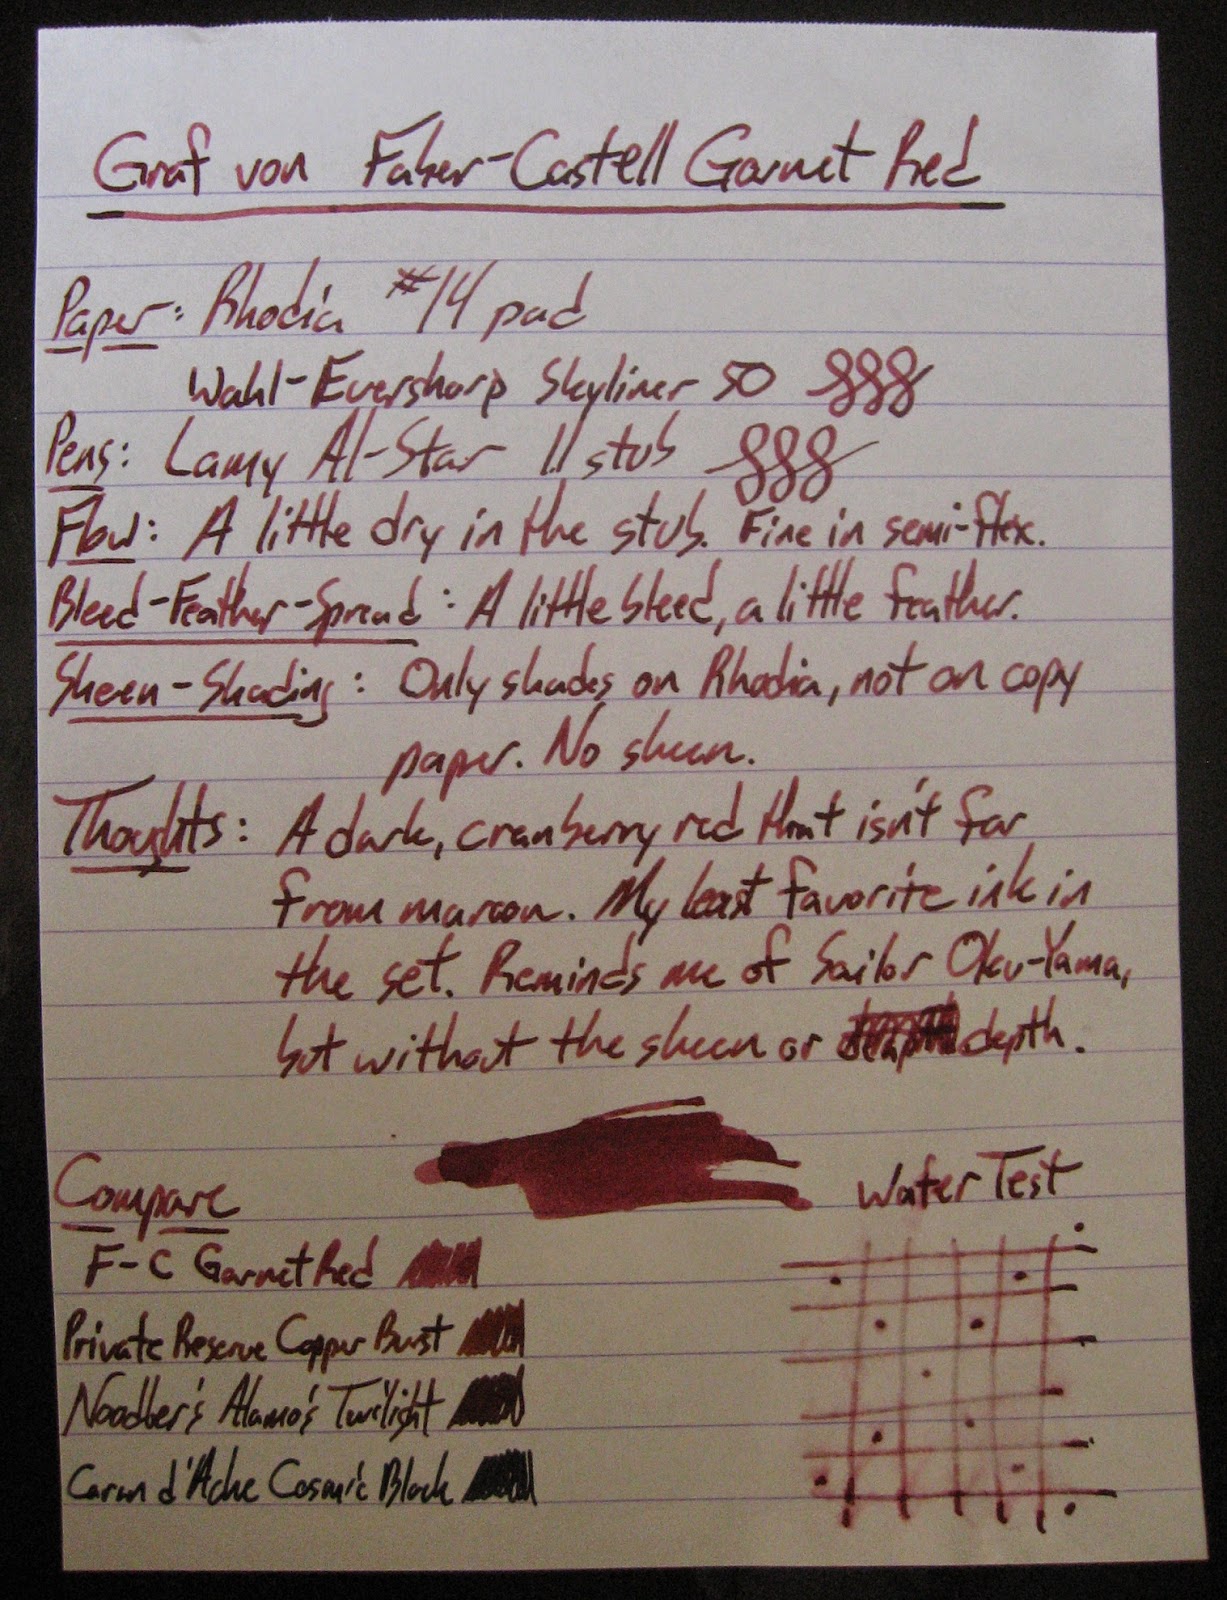 Graf von Faber-Castell Garnet Red
Paper: Rhodia #14 pad
Wahl-Eversharp Skyliner 50
Pens: Lamy Al-Star 1.1 stub
Flow: A little dry in the stub. Fine in semi-flex.
Bleed-Feather-Spread: A little bleed, a little feather.
Sheen-Shading: Only shades on Rhodia, not on copy
paper. No sheen.
Thoughts: A dark, cranberry red that isn't far
from maroon. My least favorite ink in
the set. Reminds me of Sailor Oku-Yama,
but without the sheen or depth.
Compare
Water Test
F-C Garnet Red
Private Reserve Copper Burst
Noodler's Alamo's Twilight
Caran d'Ache Cosmic Black